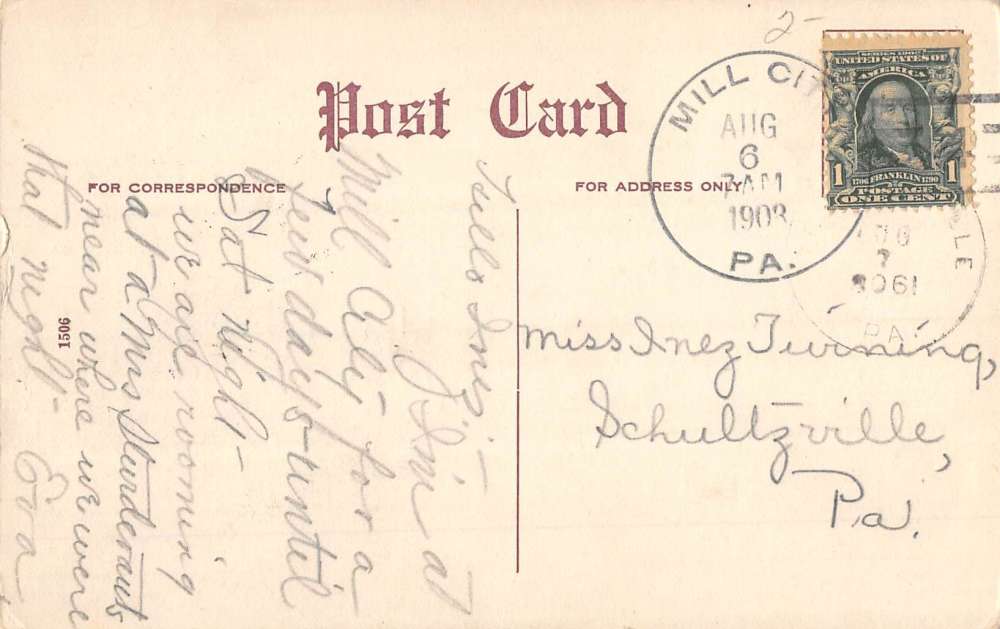 2-
Post Card
FOR CORRESPONDENCE
FOR ADDRESS ONLY
SERIES 1902
UNITED STATES OF
AMERICA
1 1
1706 FRANKLIN 1790
POSTAGE
ONE CENT
MILL CITY
AUG
6
7AM
1908
PA.
7
1906
PA.
1506
Hello Inez -
I'm at
Mill City for a
few days - until
Sat night -
we are rooming
at a Mrs Sturdevants
near where we were
that night - Eva
Miss Inez Twining,
Schultzville,
Pa.